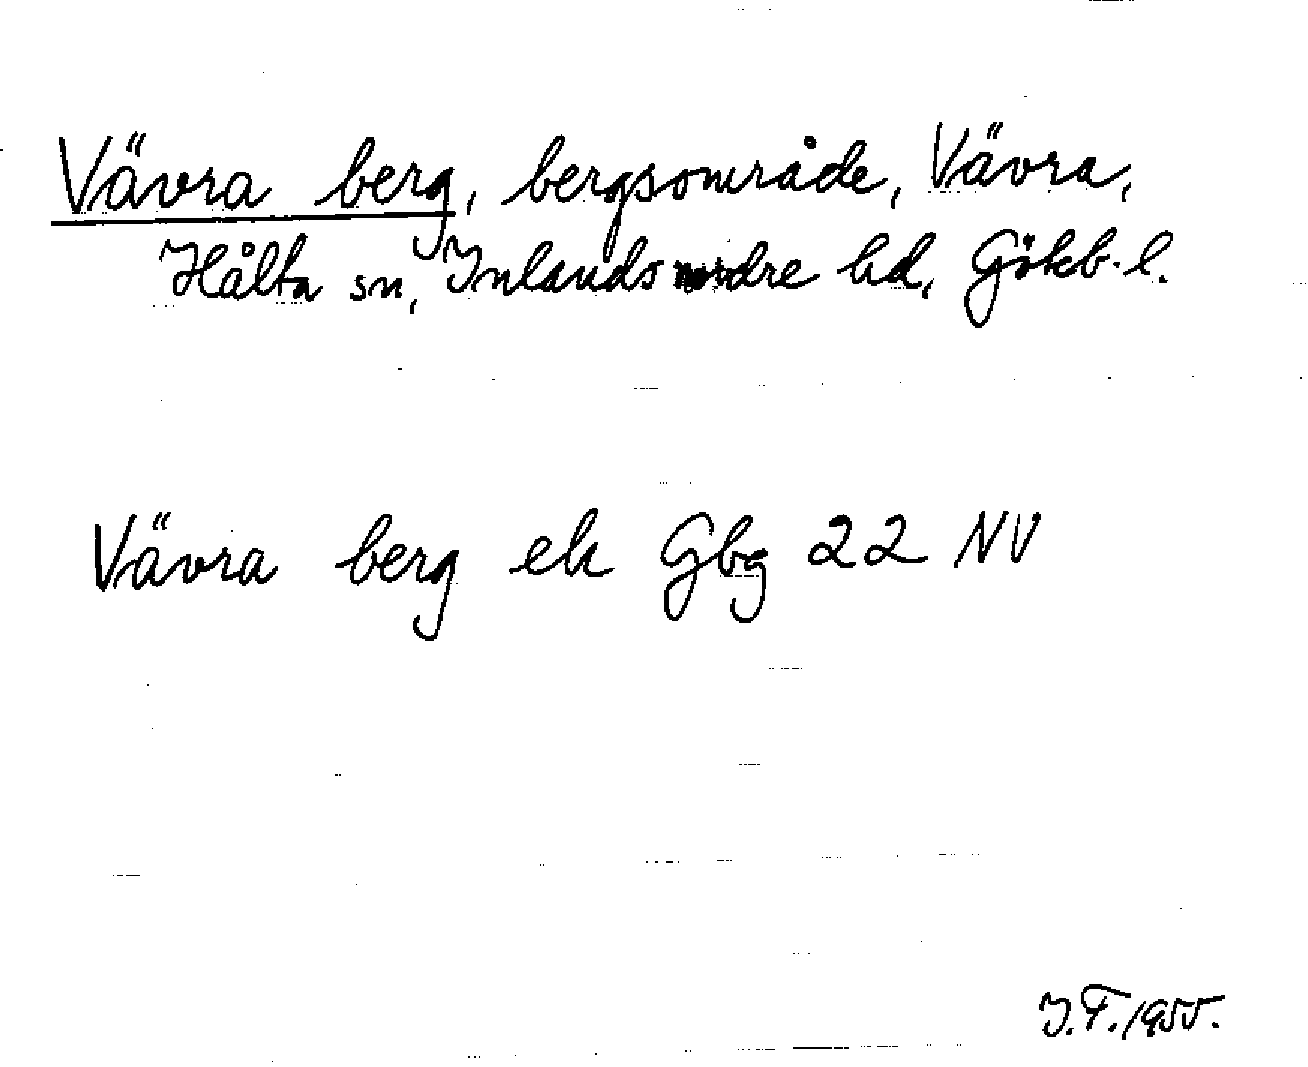 Vävra berg, bergsområde, Vävra,
Hålta sn, Inlands nordre hd, Gökb. l.
Vävra berg ek Gbg 22 NV
I.F. 1955.